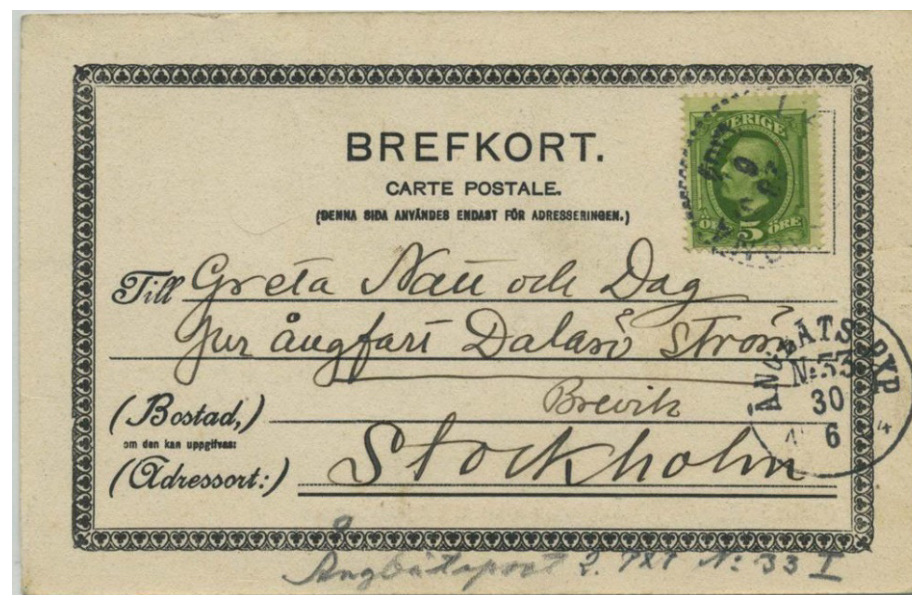 BREFKORT.
CARTE POSTALE.
(DENNA SIDA ANVÄNDES ENDAST FÖR ADRESSERINGEN.)
SVERIGE
5 ÖRE
Till Greta Natt och Dag
pur ångfart Dalarö Ström
(Bostad,) Brevik
om den kan uppgifvas:
(Adressort:) Stockholm
ÅNGBÅTS PXP
No 53
30
6
Ångbåtspost 2. PXP No: 33 I